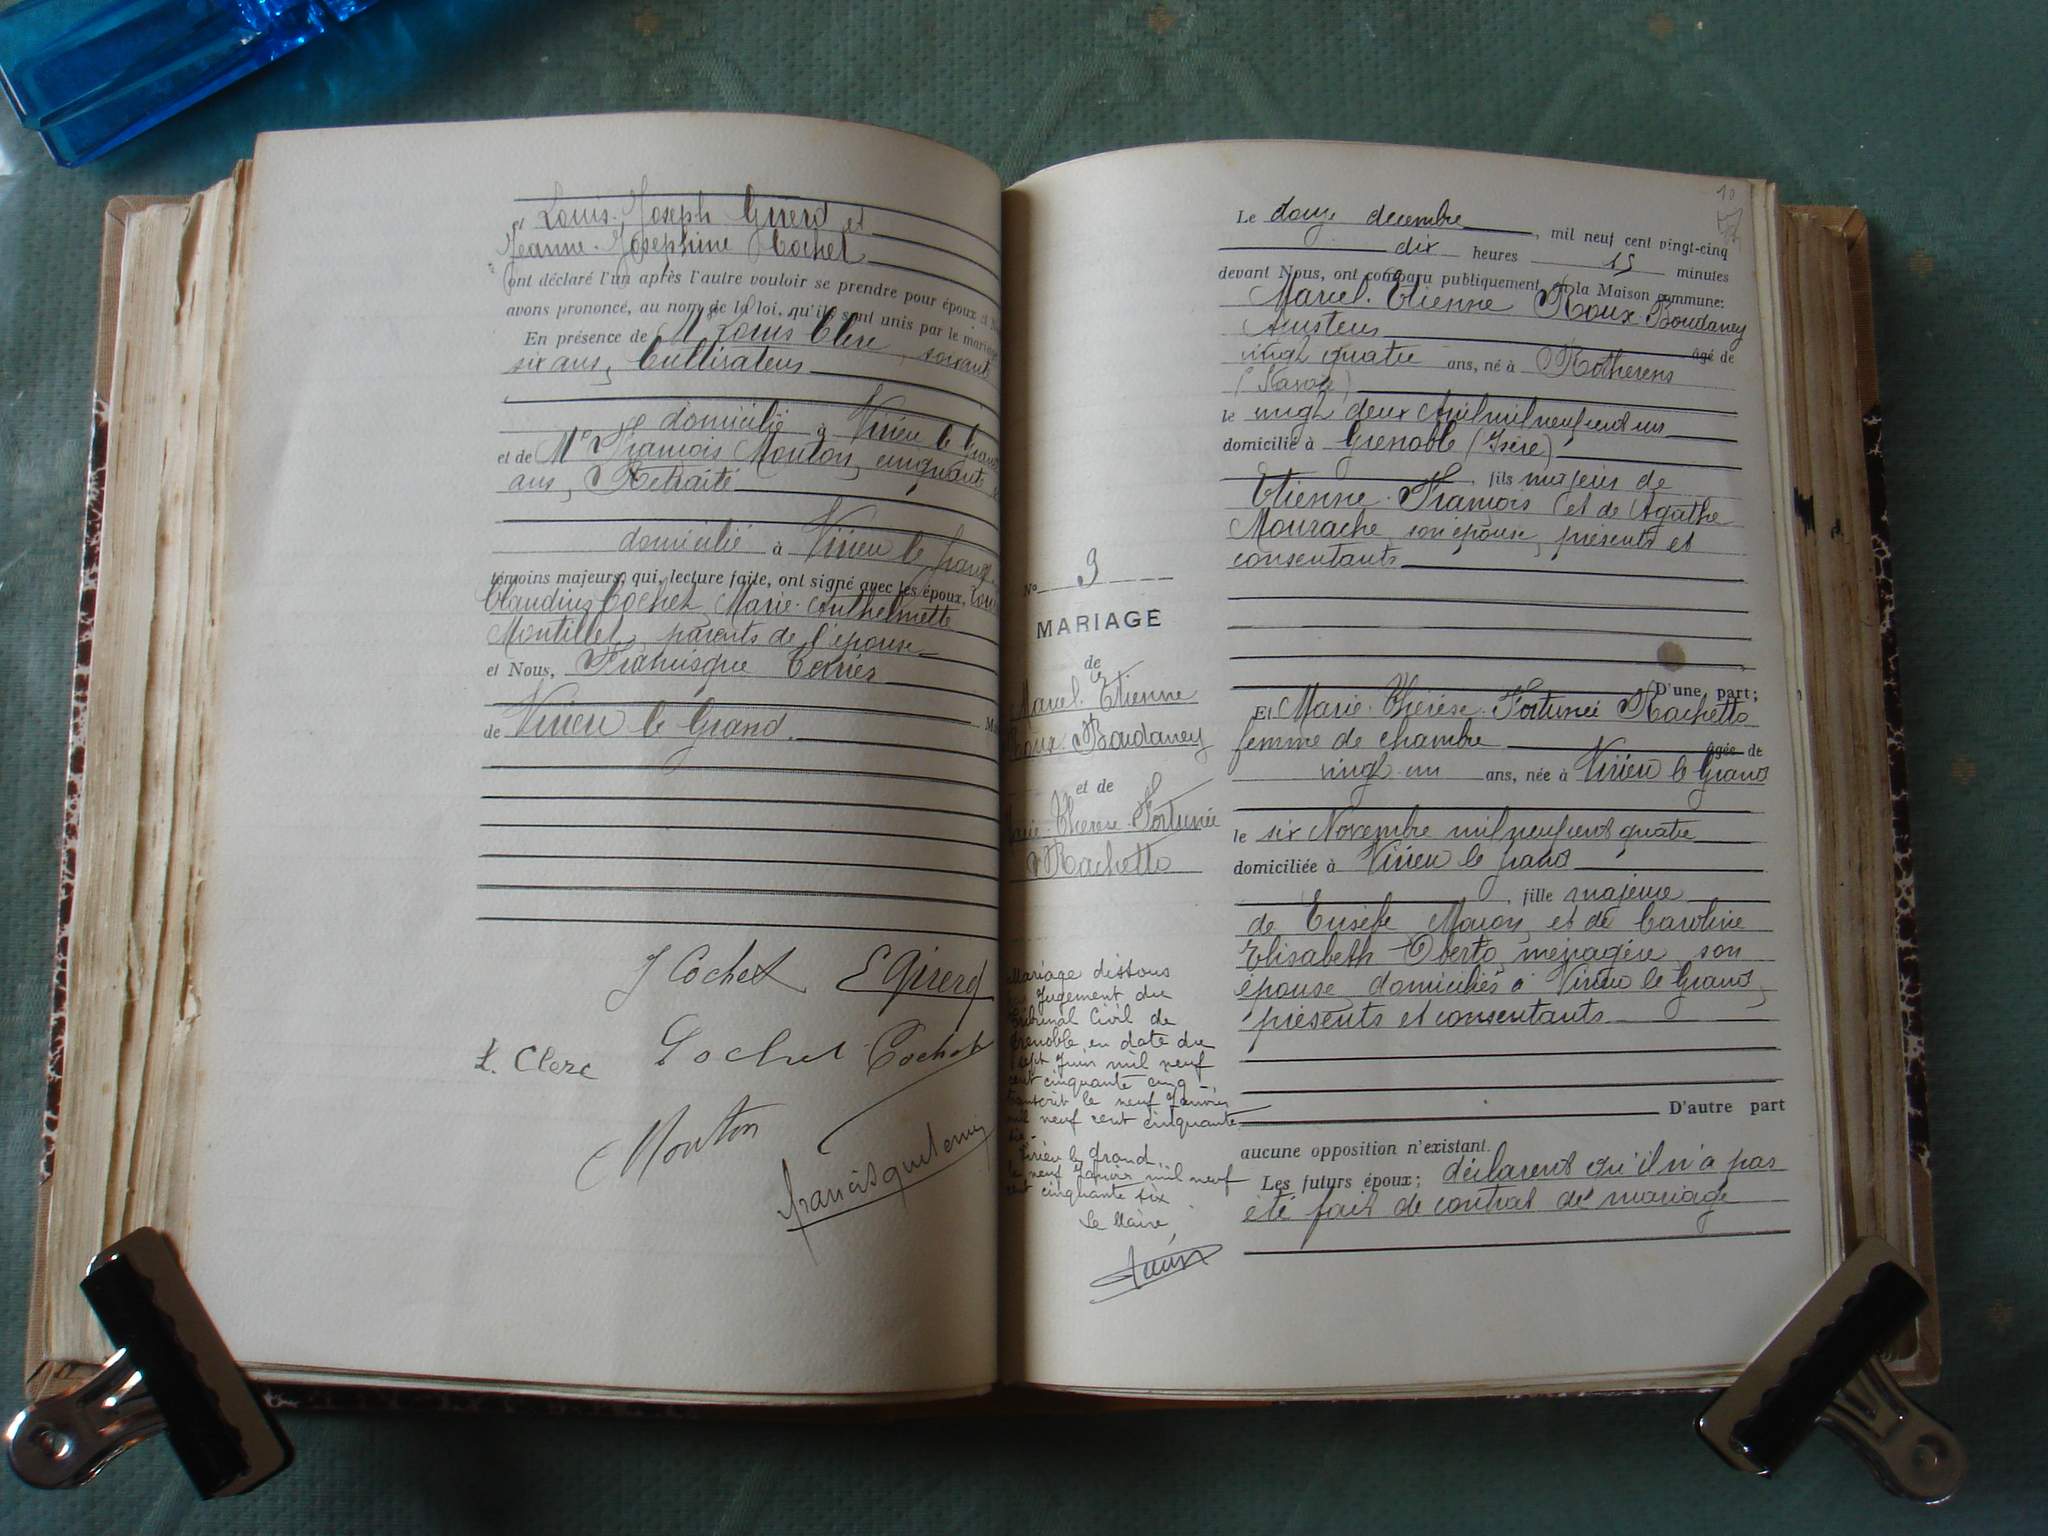 et Louis-Joseph Girerd et
Jeanne-Joséphine Cochet
ont déclaré l'un après l'autre vouloir se prendre pour époux et
avons prononcé, au nom de la loi, qu'ils sont unis par le mariage
En présence de M. Louis Clerc, soixante
six ans, Cultivateur
domicilié à Virieu le Grand
et de Mr François Mouton, cinquante
ans, Retraité
domicilié à Virieu le grand
témoins majeurs, qui, lecture faite, ont signé avec les époux,
Claudius Cochet, Marie-Anthelmette
Montillet, parents de l'épouse
et Nous, Francisque
de Virieu le Grand.
J Cochet E Girerd
L. Clerc Cochet Cochet
Mouton
10
Le douze decembre, mil neuf cent vingt-cinq
dix heures 15 minutes
devant Nous, ont comparu publiquement en la Maison commune:
Marcel-Etienne Roux-Boudaney
Ajusteur
âgé de
vingt quatre ans, né à Rotherens
(Savoie)
le vingt deux Avril mil neuf cent un
domicilié à Grenoble (Isère)
, fils majeur de
Etienne-François et de Agathe
Mourache, son épouse, présents et
consentants
D'une part;
Et Marie-Thérèse-Fortunée Rachetto
femme de chambre âgée de
vingt un ans, née à Virieu le Grand
le six Novembre mil neuf cent quatre
domiciliée à Virieu le grand
, fille majeure
de Eusèbe, Maçon, et de Caroline
Elisabeth Oberto, ménagère, son
épouse, domiciliés à Virieu le Grand,
présents et consentants
D'autre part
aucune opposition n'existant.
Les futurs époux; déclarent qu'il n'a pas
été fait de contrat de mariage
No 9
MARIAGE
de
Marcel-Etienne
Roux-Boudaney
et de
Marie-Thérèse-Fortunée
Rachetto
Mariage dissous
Jugement du
Tribunal Civil de
Grenoble, en date du
sept Juin mil neuf
cent cinquante cinq,
transcrit le neuf Janvier
mil neuf cent cinquante
six
Virieu le Grand,
le neuf Janvier mil neuf
cent cinquante six
Le Maire